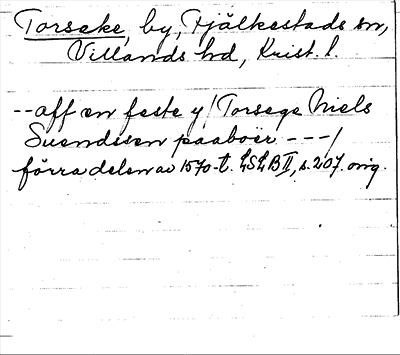 Torseke, by, Fjälkestads sn,
Villands hd, Krist. l.
-- aff en feste y / Torsege Niels
Suendssen paaboer --- /
förra delen av 1570-t. LSLB II, s. 207. orig.